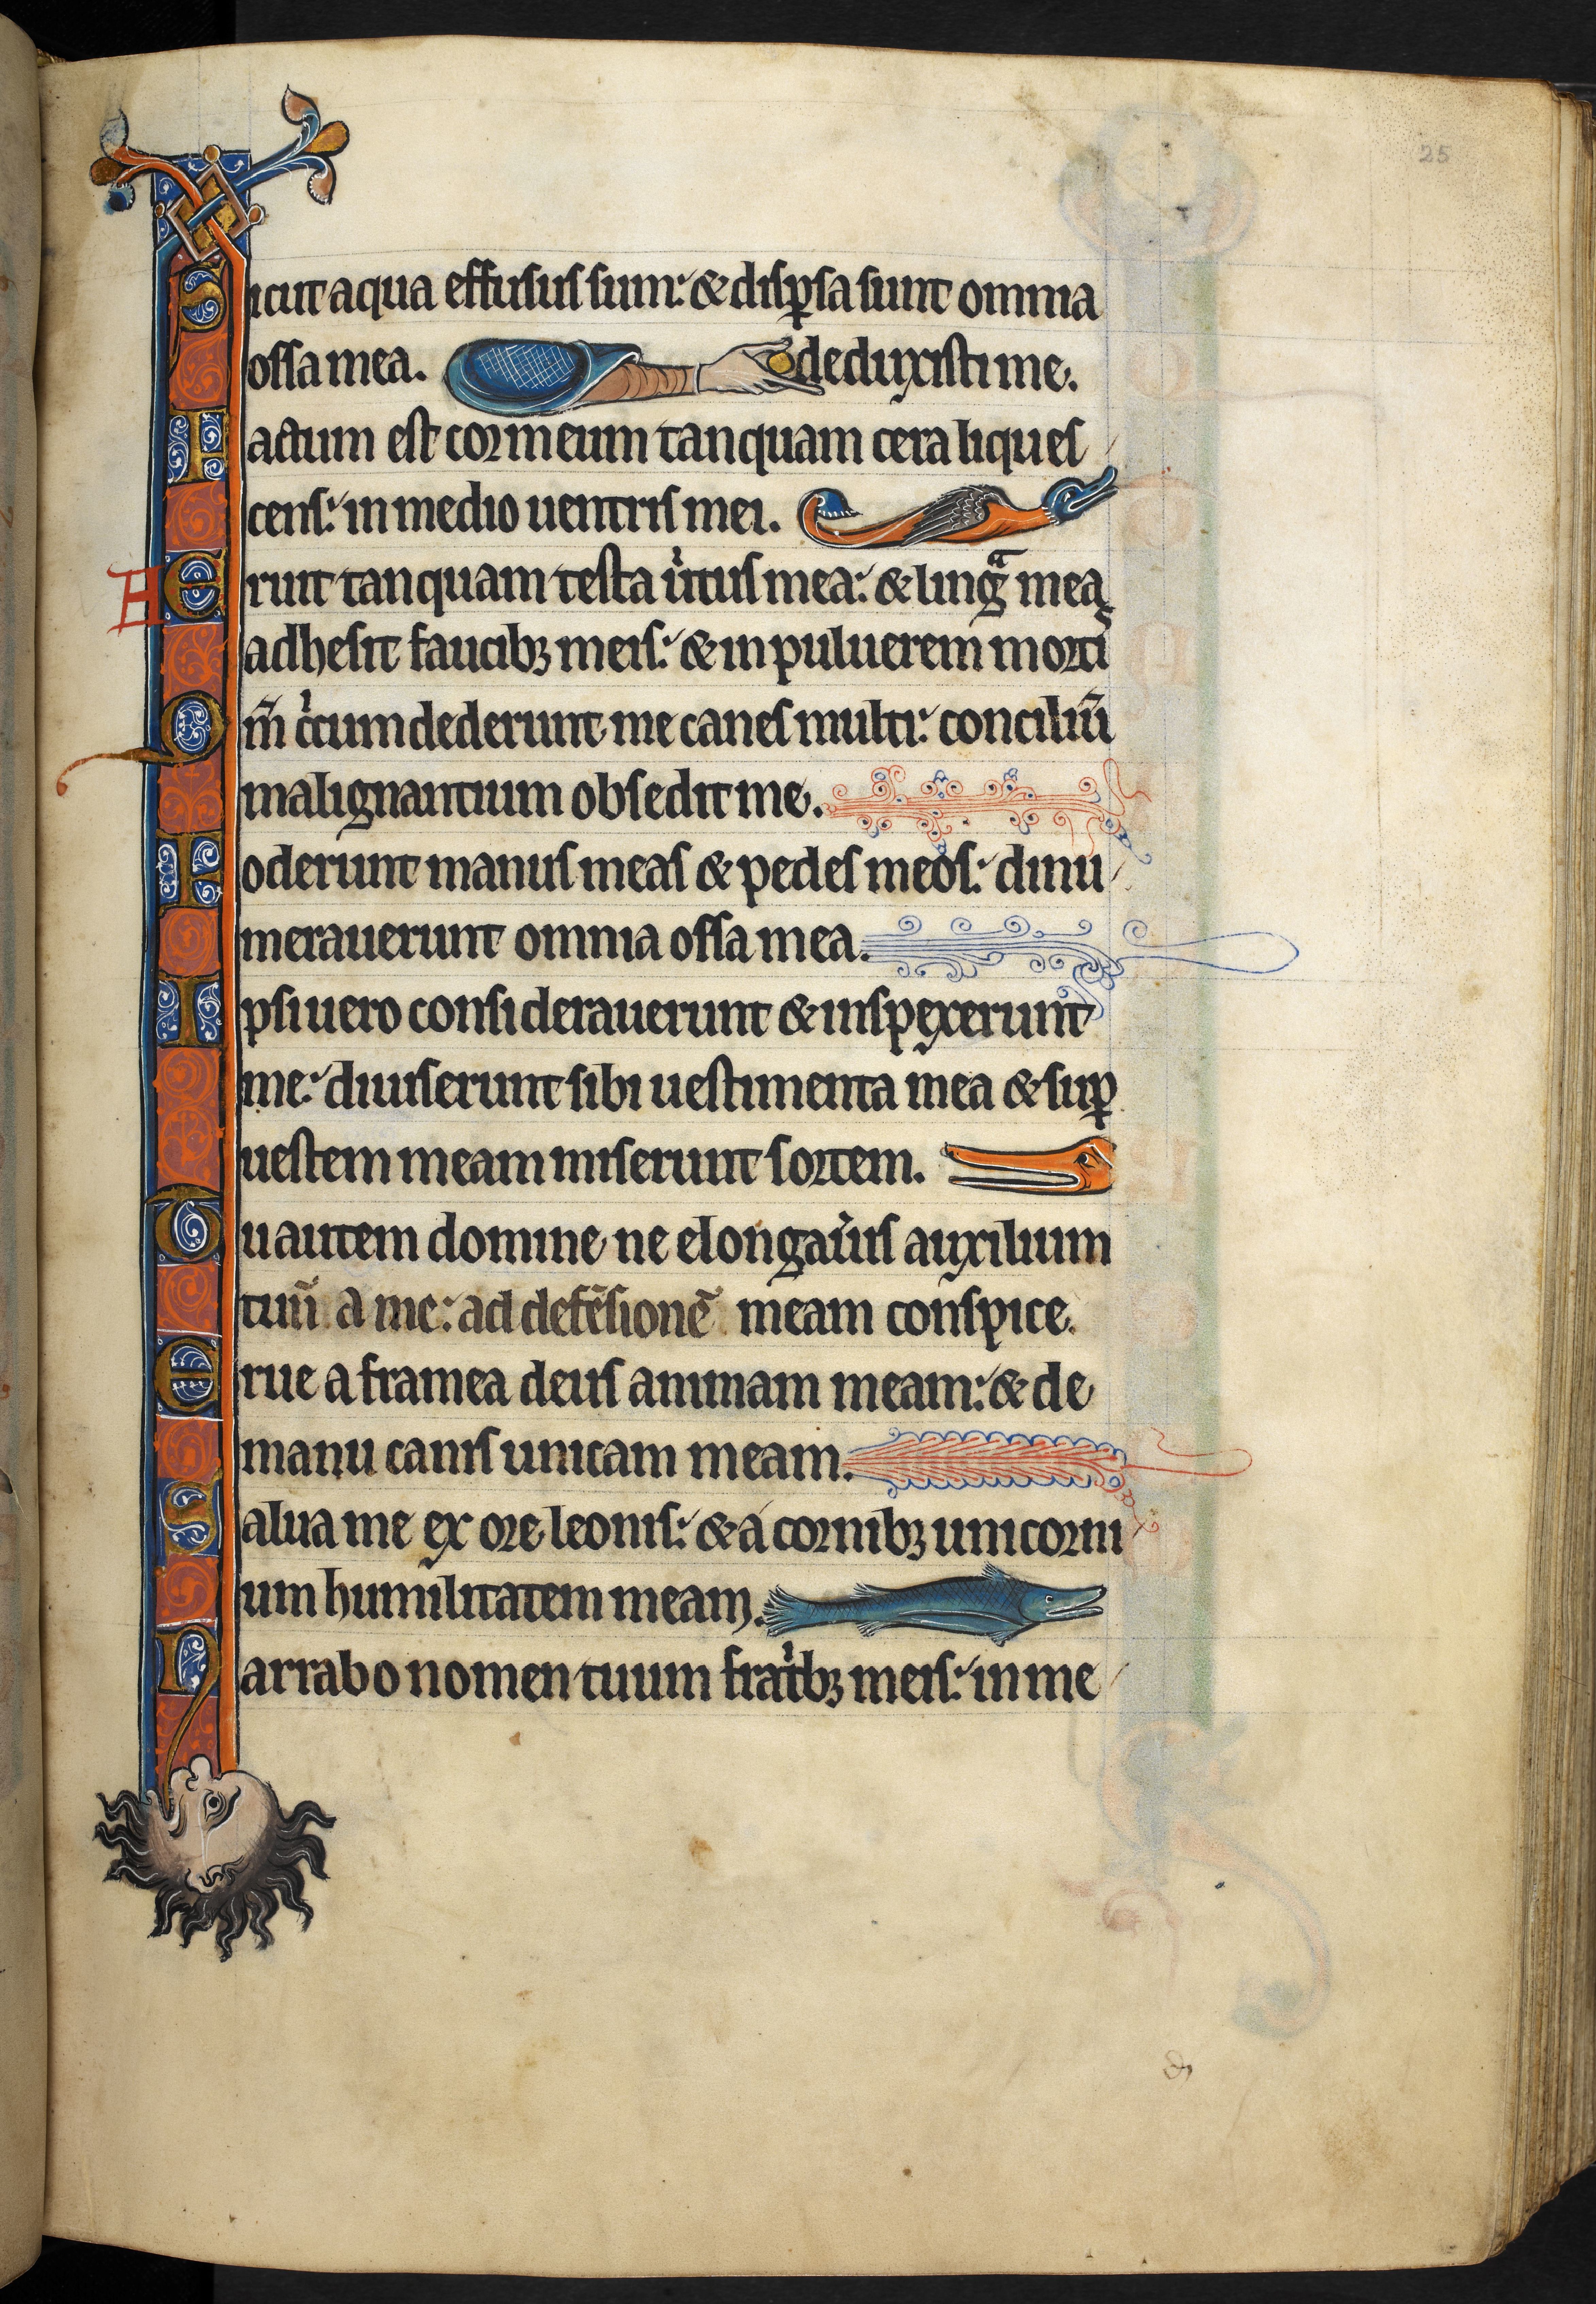 25
Sicut aqua effusus sum: & disꝑsa sunt omnia
ossa mea. deduxisti me.
Factum est cor meum tanquam cera liques
cens: in medio uentris mei.
Aruit tanquam testa uͥtus mea: & lingᷓ mea
adhesit faucibꝫ meis: & in puluerem morti
Qm̃ cͥcumdederunt me canes multi: conciliũ
malignantium obsedit me.
Foderunt manus meas & pedes meos: dinu
merauerunt omnia ossa mea.
Ipsi uero considerauerunt & inspexerunt
me: diuiserunt sibi uestimenta mea & suꝑ
uestem meam miserunt sortem.
Tu autem domine ne elongauͥis auxilium
tuũ a me: ad defẽsionẽ meam conspice.
Erue a framea deus animam meam: & de
manu canis unicam meam.
Salua me ex ore leonis: & a cornibꝫ unicorni
um humilitatem meam.
Narrabo nomen tuum fratͥbꝫ meis: in me